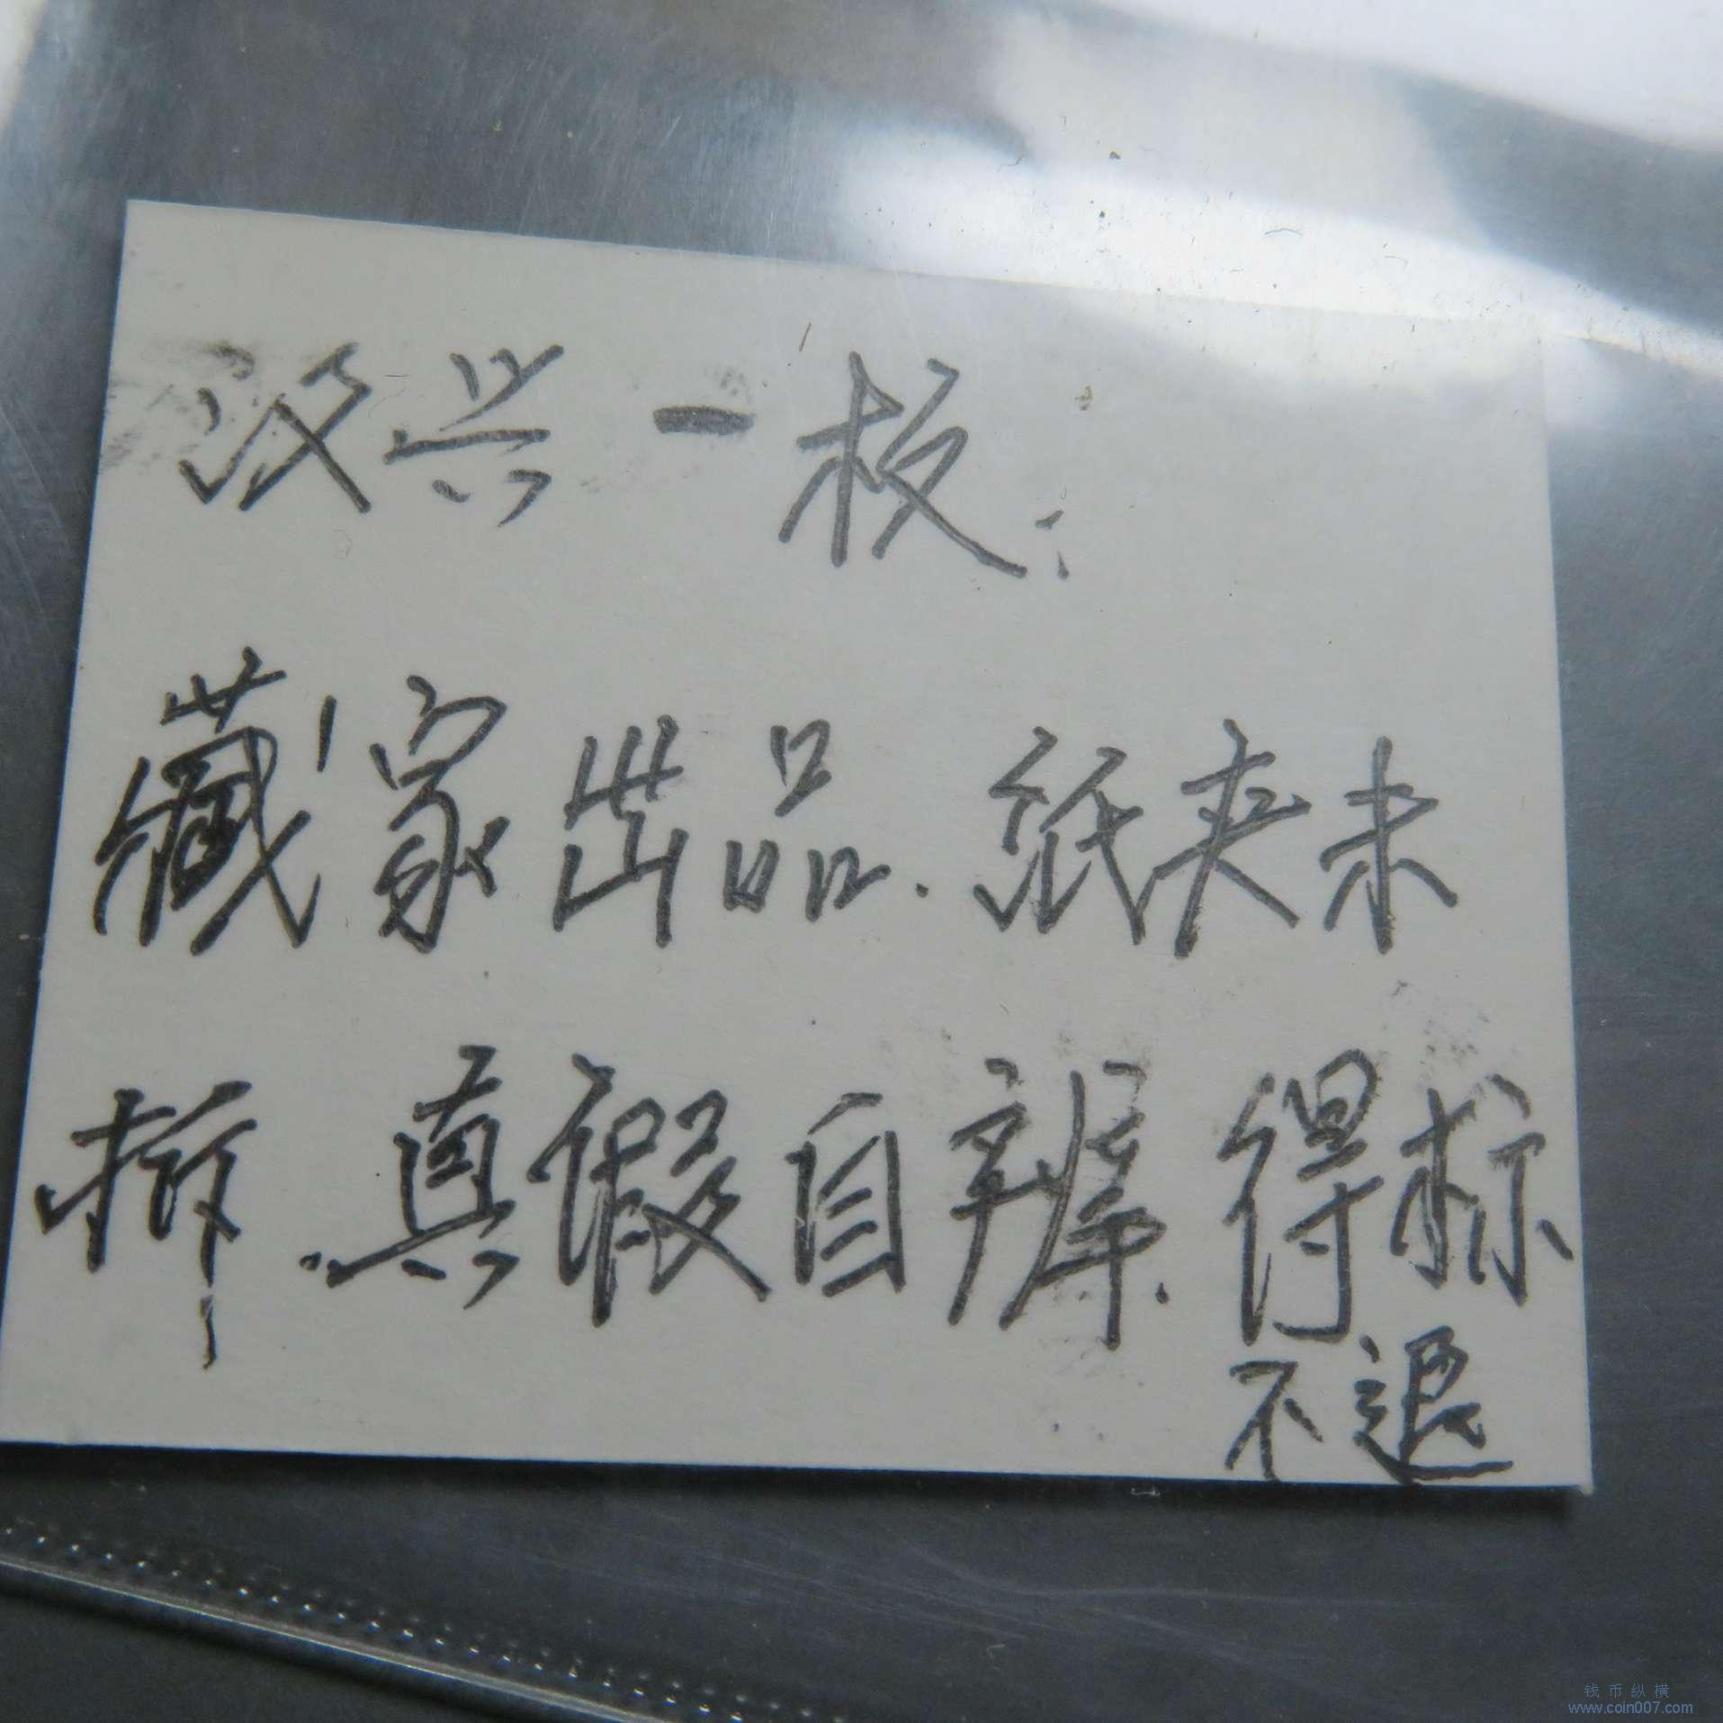 汉兴一板:
藏家出品.纸夹未
拆.真假自辨.得标
不退
钱币纵横
www.coin007.com